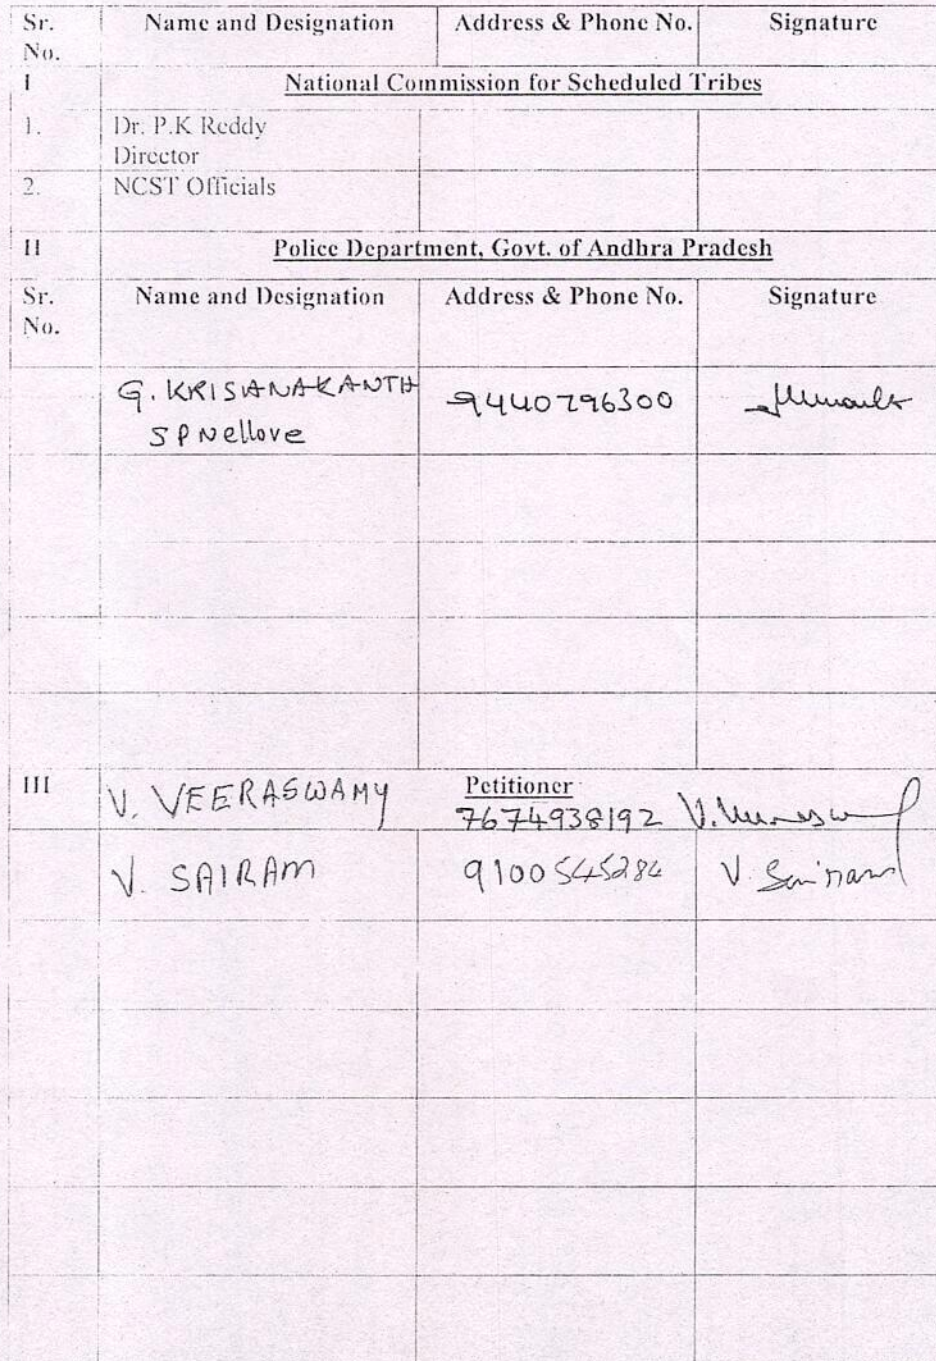 Sr. No. Name and Designation Address & Phone No. Signature
I National Commission for Scheduled Tribes
1. Dr. P.K Reddy
Director
2. NCST Officials
II Police Department, Govt. of Andhra Pradesh
Sr. No. Name and Designation Address & Phone No. Signature
G. KRISANAKANTH 9440796300
SP Nellove
III Petitioner
V. VEERASWAMY 7674938192
V. SAIRAM 9100545284 V. Sairam